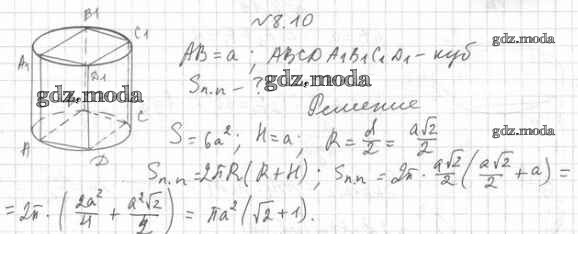 №8.10
AB = a ; ABCDA₁B₁C₁D₁ – куб
Sп.п – ?
Решение
S = 6a²; H = a; R = d/2 = a√2/2
Sп.п = 2πR(R+H) ; Sп.п = 2π · a√2/2 (a√2/2 + a) =
= 2π · (2a²/4 + a²√2/2) = πa²(√2+1).
B1
C1
A1
D1
C
A
D
gdz.moda
gdz.moda
gdz.moda
gdz.moda